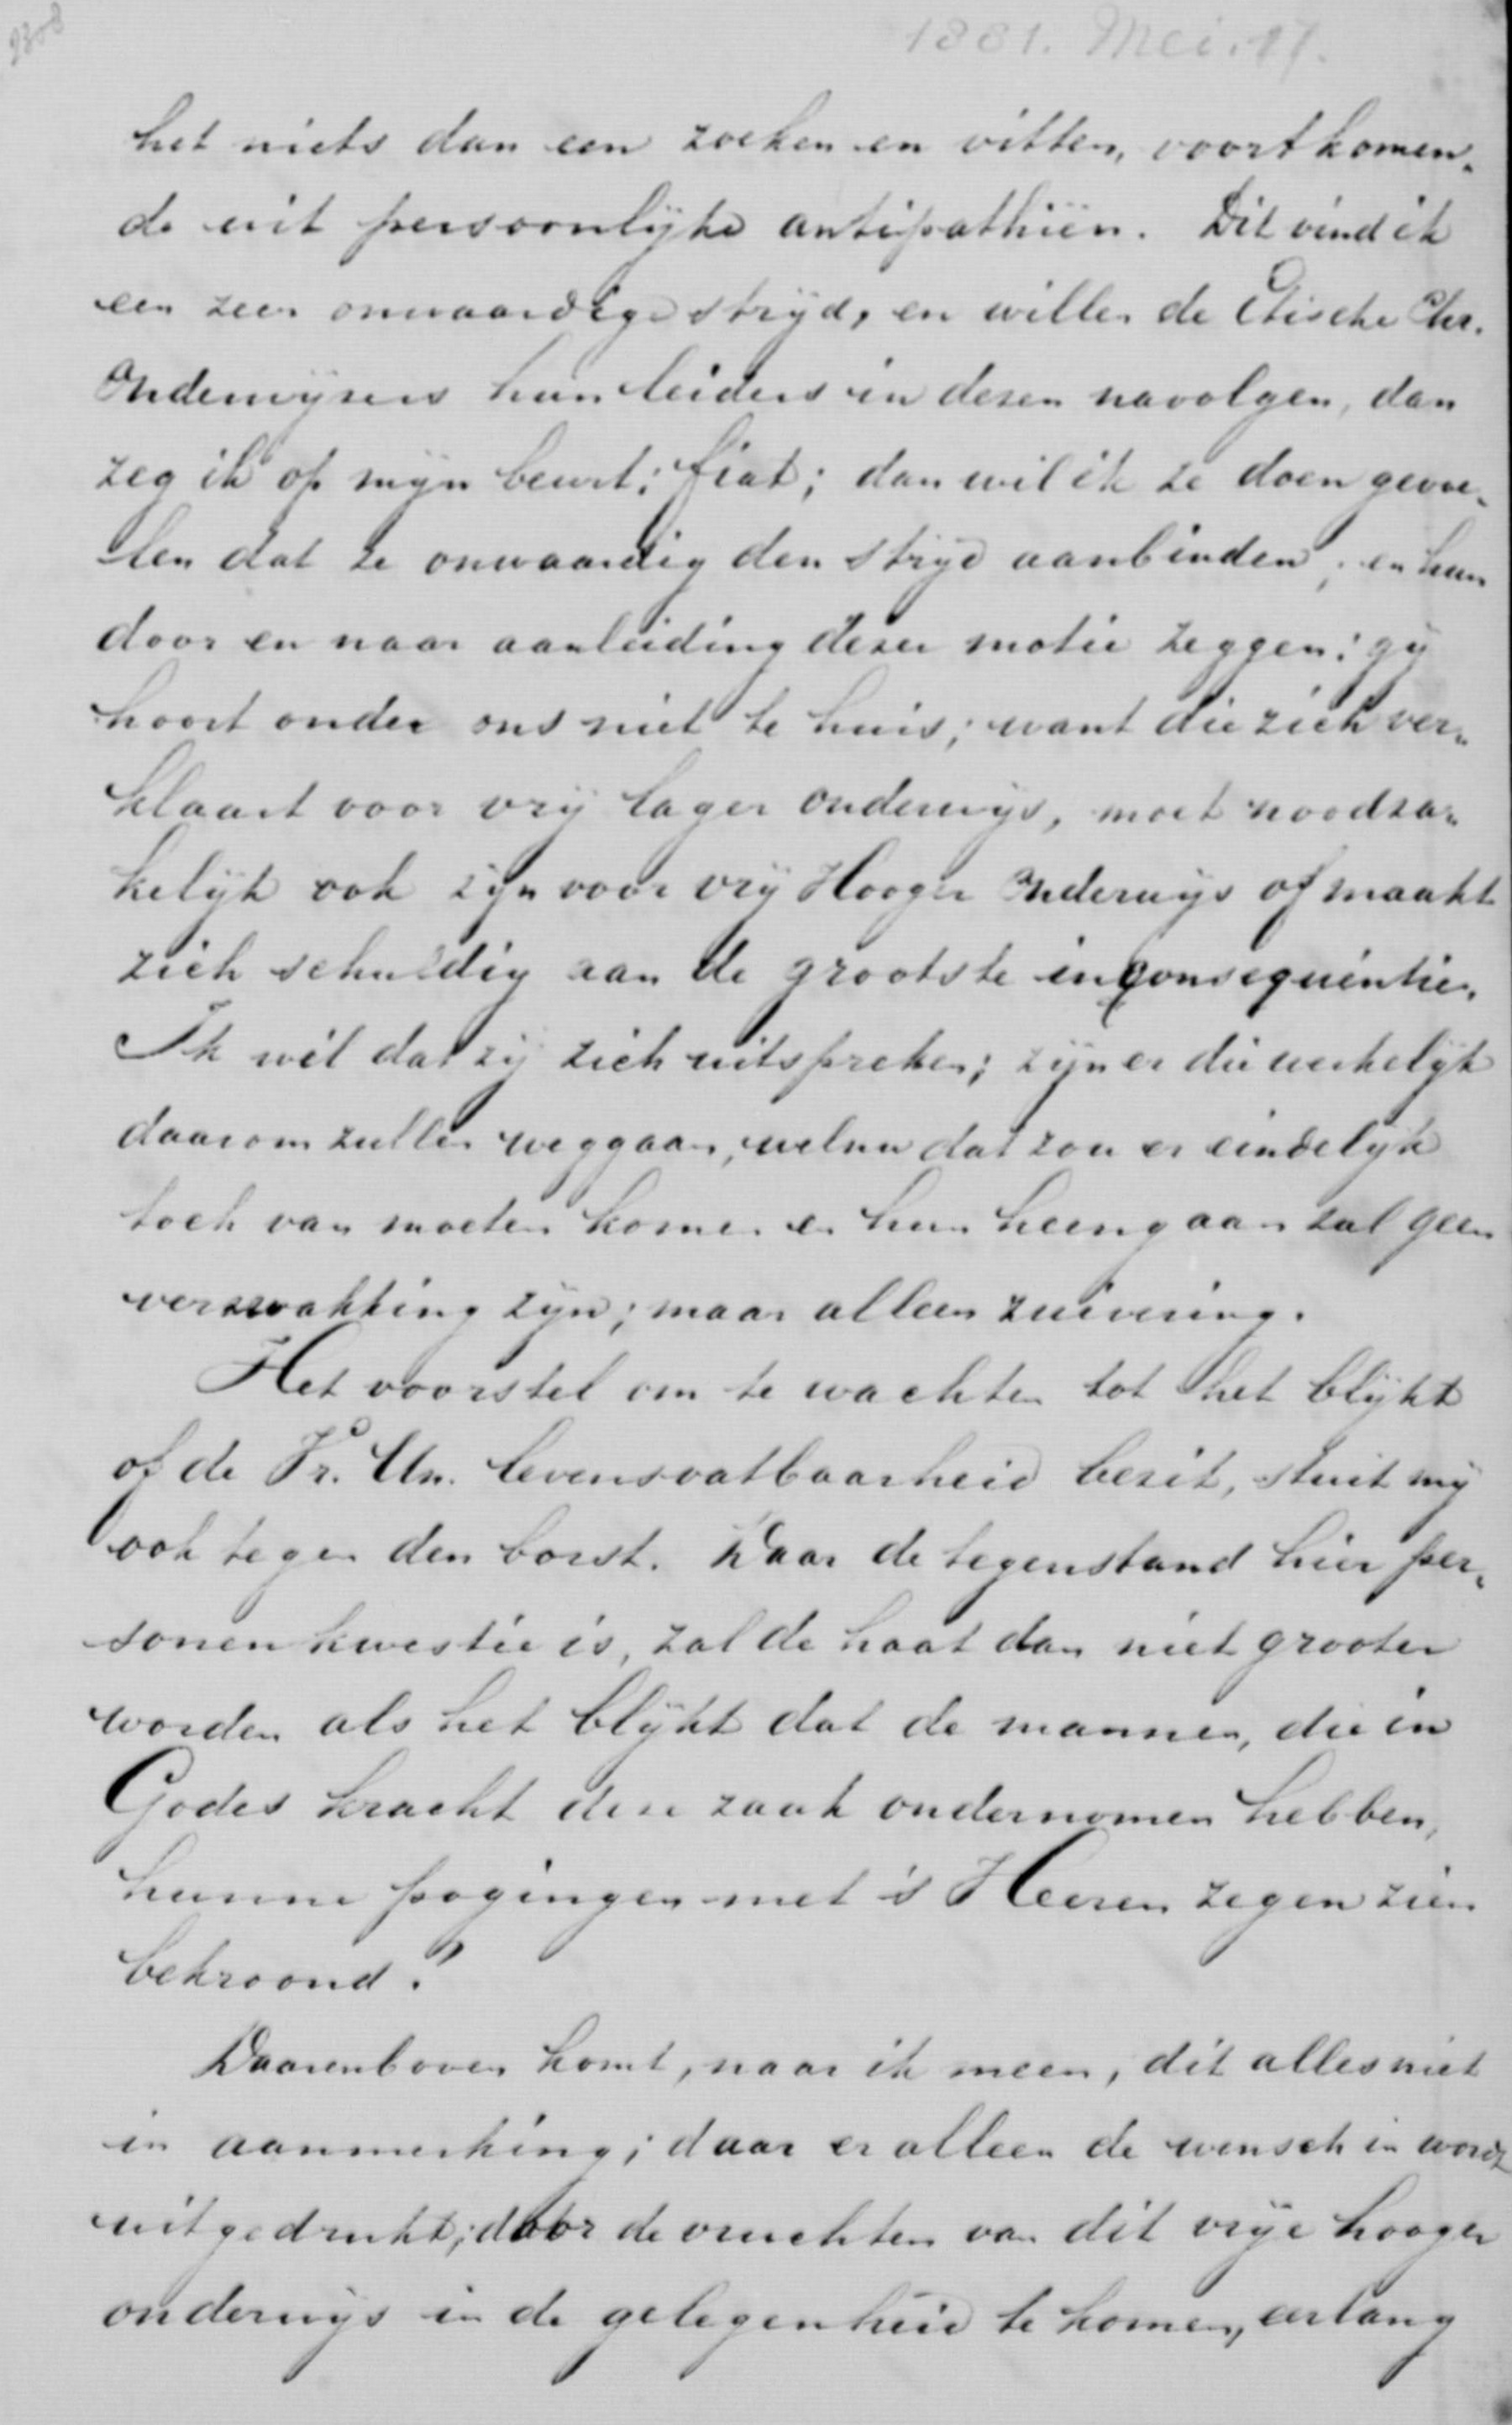 1881. Mei. 17.
het niets dan een zoeken en vitten, voortkomen„
de uit persoonlijke antipathiën. Dit vind ik
een zeer onwaardige strijd, en willen de Etische Chr.
Onderwijzers hun leiders in dezen navolgen, dan
zeg ik op mijn beurt: fiat; dan wil ik ze doen gevoe„
len dat ze onwaardig den strijd aanbinden; en hun
door en naar aanleiding dezer motie zeggen: gij
hoort onder ons niet te huis; want die zich ver„
klaart voor vrij lager onderwijs, moet noodza„
kelijk ook zijn voor vrij Hooger Onderwijs of maakt
zich schuldig aan de grootste inconsequentie.
Ik wil dat zij zich uitspreken; zijn er die werkelijk
daarom zullen weggaan, welnu dat zou er eindelijk
toch van moeten komen en hun heengaan zal geen
verzwakking zijn; maar alleen zuivering.
Het voorstel om te wachten tot het blijkt
of de Vr. Un. levensvatbaarheid bezit, stuit mij
ook tegen den borst. Daar de tegenstand hier per„
sonenkwestie is, zal de haat dan niet grooter
worden als het blijkt dat de mannen, die in
Godes kracht deze zaak ondernomen hebben,
hunne pogingen met 's Heeren zegen zien
bekroond?
Daarenboven komt, naar ik meen, dit alles niet
in aanmerking; daar er alleen de wensch in wordt
uitgedrukt; door de vruchten van dit vrije hooger
onderwijs in de gelegenheid te komen, eerlang